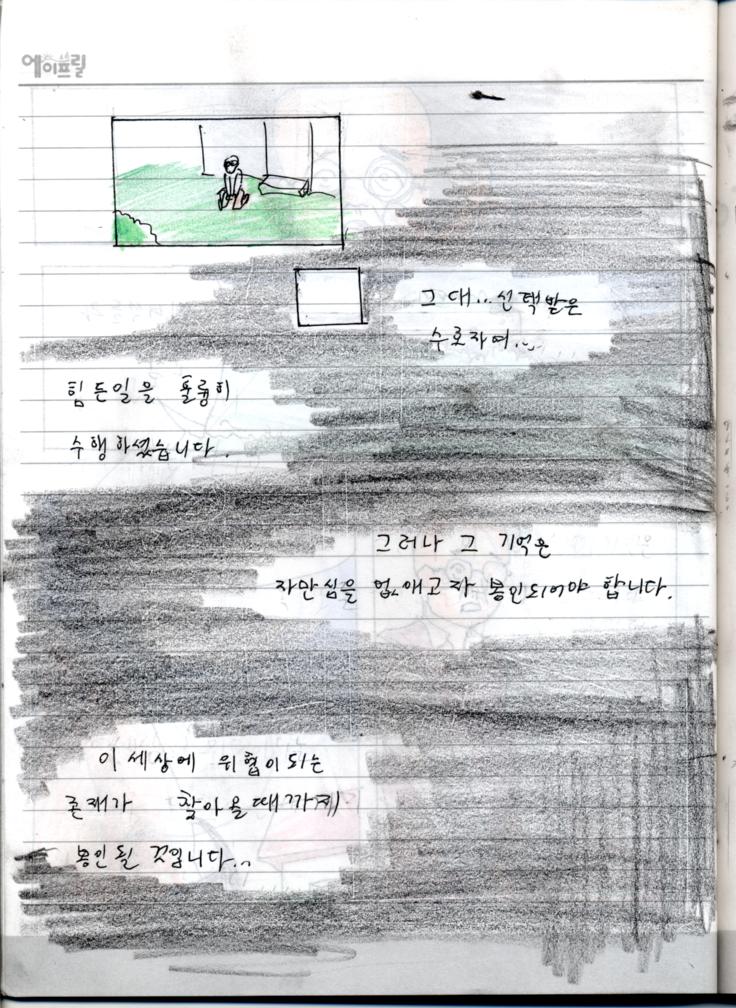 에이프릴
그대...선택받은
수호자여...
힘든일을 훌륭히
수행하셨습니다.
그러나 그 기억은
자만심을 없애고자 봉인되어야 합니다.
이 세상에 위협이되는
존재가 찾아올때까지
봉인될 것입니다...